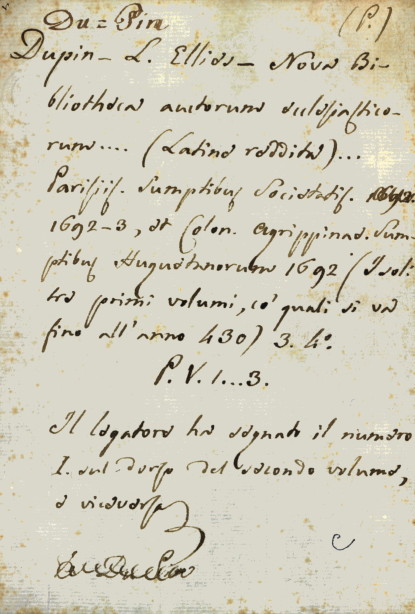 Du=Pin (P.)
Dupin - L. Ellies - Nova Bi-
bliotheca auctorum ecclesiastico-
rum.... (Latine reddita)...
Parisiis. Sumptibus Societatis.
1692-3, et Colon. Agrippinae. Sum-
ptibus Huguetanorum 1692 (I soli
tre primi volumi, co' quali si va
fino all'anno 430) 3. 4º.
P. V. 1...3.
Il legatore ha segnato il numero
I. sul dorso del secondo volume,
e viceversa